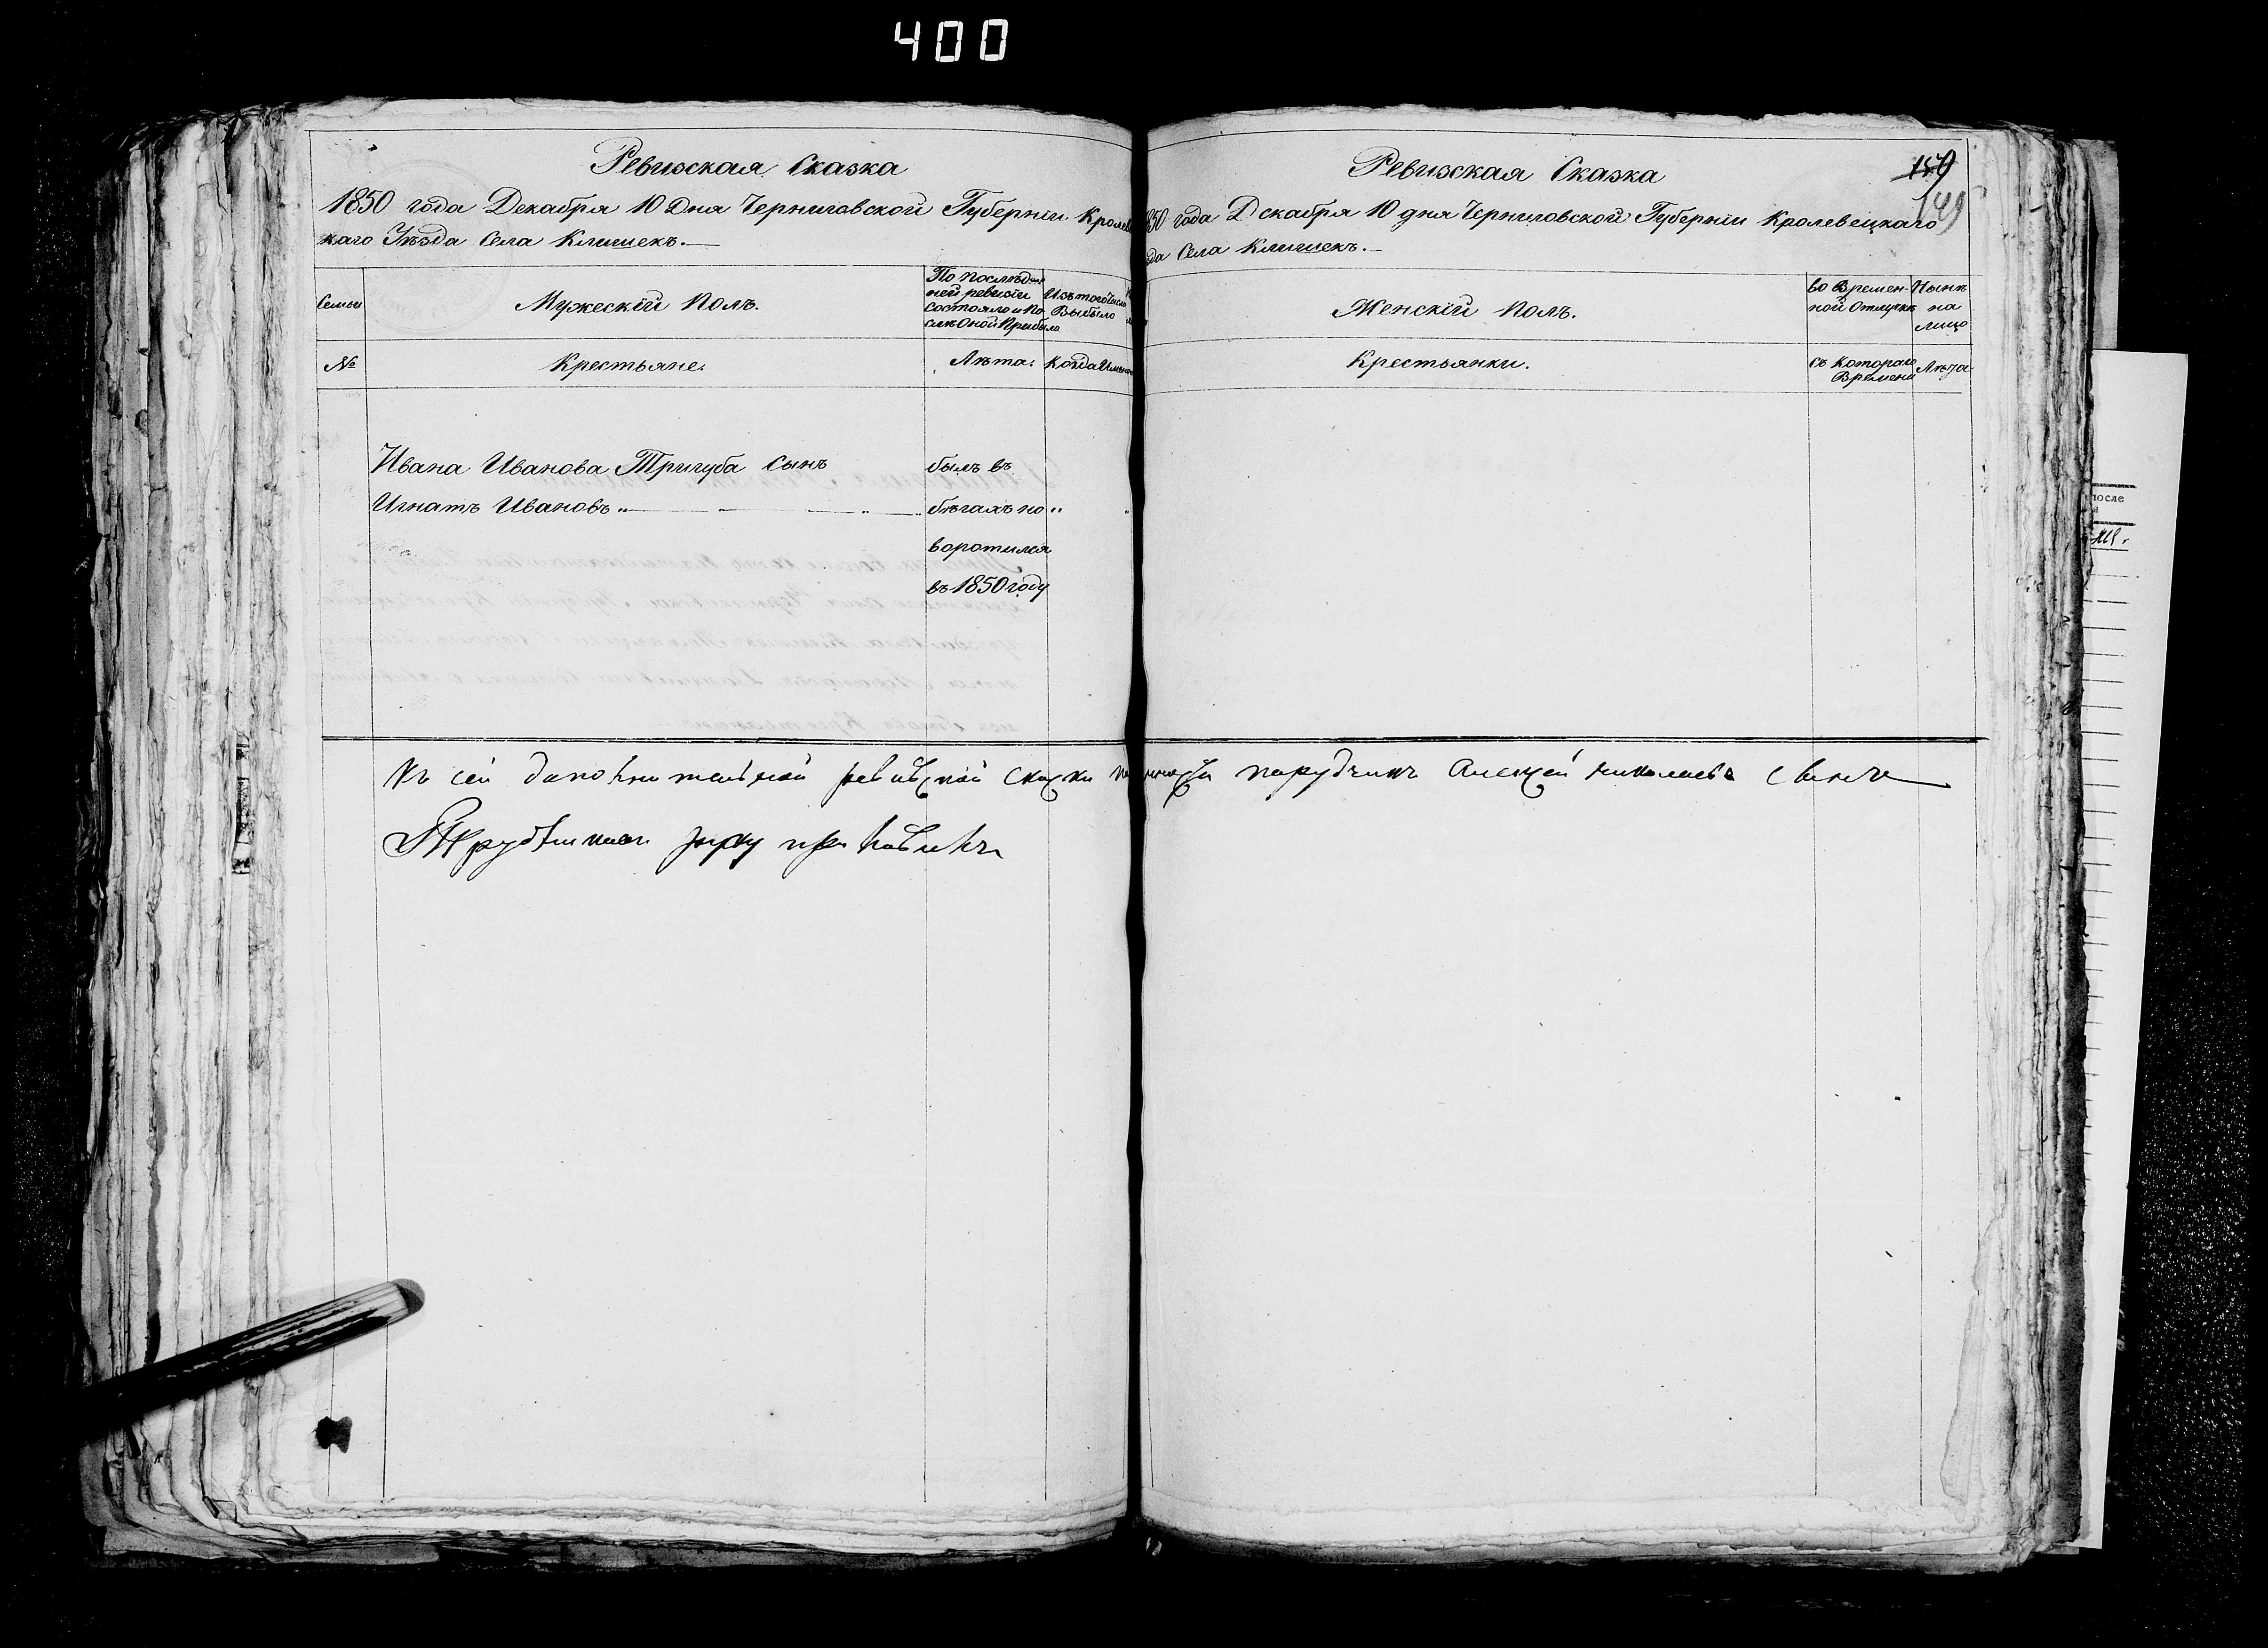 400
Ревизская Сказка
1850 года Декабря 10 Дня Черниговской Губерніи Кролев
каго Уѣзда Села Клишекъ.—
Семьи
Мужескій Полъ.
По послѣд-
ней ревизіи
состояло и По
слѣ Оной Прибыло
Изъ того Числа
Выбыло
№
Крестьяне.
Лѣта.
Когда Именно
Ивана Иванова Тригуба Сынъ
былъ въ
Игнатъ Ивановъ „ — — „ —
бѣгахъ по „
воротился
въ 1850 году
Ревизская Сказка
159
149
850 года Декабря 10 дня Черниговской Губерніи Кролевецкаго
да Села Клишекъ.—
Женскій Полъ.
во Времен-
ной Отлучкѣ
Нынѣ
на
лицо
Крестьянки.
съ Котораго
Времени
Лѣта
после
Къ сей ревизской скаски порудчикъ Алексей Николаевъ сынъ
руку приложилъ